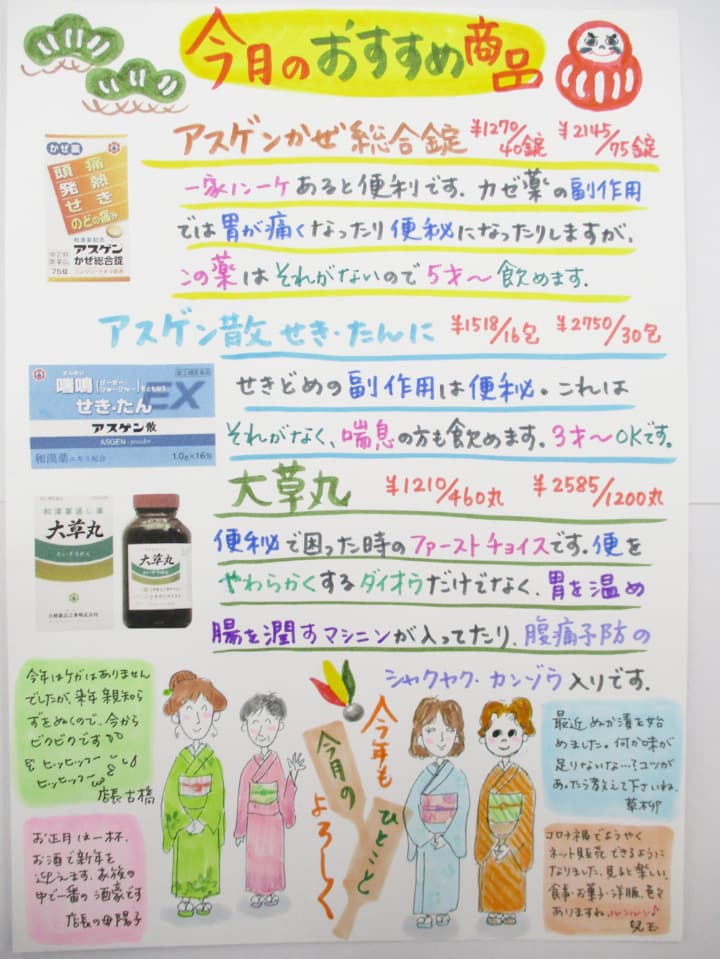 今月のおすすめ商品
アスゲンかぜ総合錠 ¥1270/40錠 ¥2145/75錠
一家に一ケあると便利です。カゼ薬の副作用
では胃が痛くなったり便秘になったりしますが、
この薬はそれがないので5才〜飲めます.
かぜ薬
頭痛
発熱
せき
のどの痛み
和漢薬配合
アスゲン
かぜ総合錠
75錠
アスゲン散 せき・たんに ¥1518/16包 ¥2750/30包
せきどめの副作用は便秘。これは
それがなく、喘息の方も飲めます。3才〜OKです。
喘鳴
せき・たん EX
アスゲン散
ASGEN powder
和漢薬エキス配合 1.0g×16包
大草丸 ¥1210/460丸 ¥2585/1200丸
便秘で困った時のファーストチョイスです。便を
やわらかくするダイオウだけでなく、胃を温め
腸を潤すマシニンが入ってたり、腹痛予防の
シャクヤク・カンゾウ入りです.
和漢薬通じ薬
大草丸
たいそうがん
日野薬品工業株式会社
大草丸
今年はケガはありません
でしたが、来年親知ら
ずをぬくので、今から
ビクビクです
ヒッヒッフー
ヒッヒッフー
店長 古橋
お正月は一杯、
お酒で新年を
迎えます。家族の
中で一番の酒豪です
店長の母 陽子
今月の
ひとこと
今年も
よろしく
最近ぬか漬を始
めました。何か味が
足りないな…?コツが
あったら教えて下さいね.
草柳
コロナ禍でようやく
ネット販売できるように
なりました。見ると楽しい、
食事・お菓子・洋服、色々
ありますね。ルンルン♪
児玉